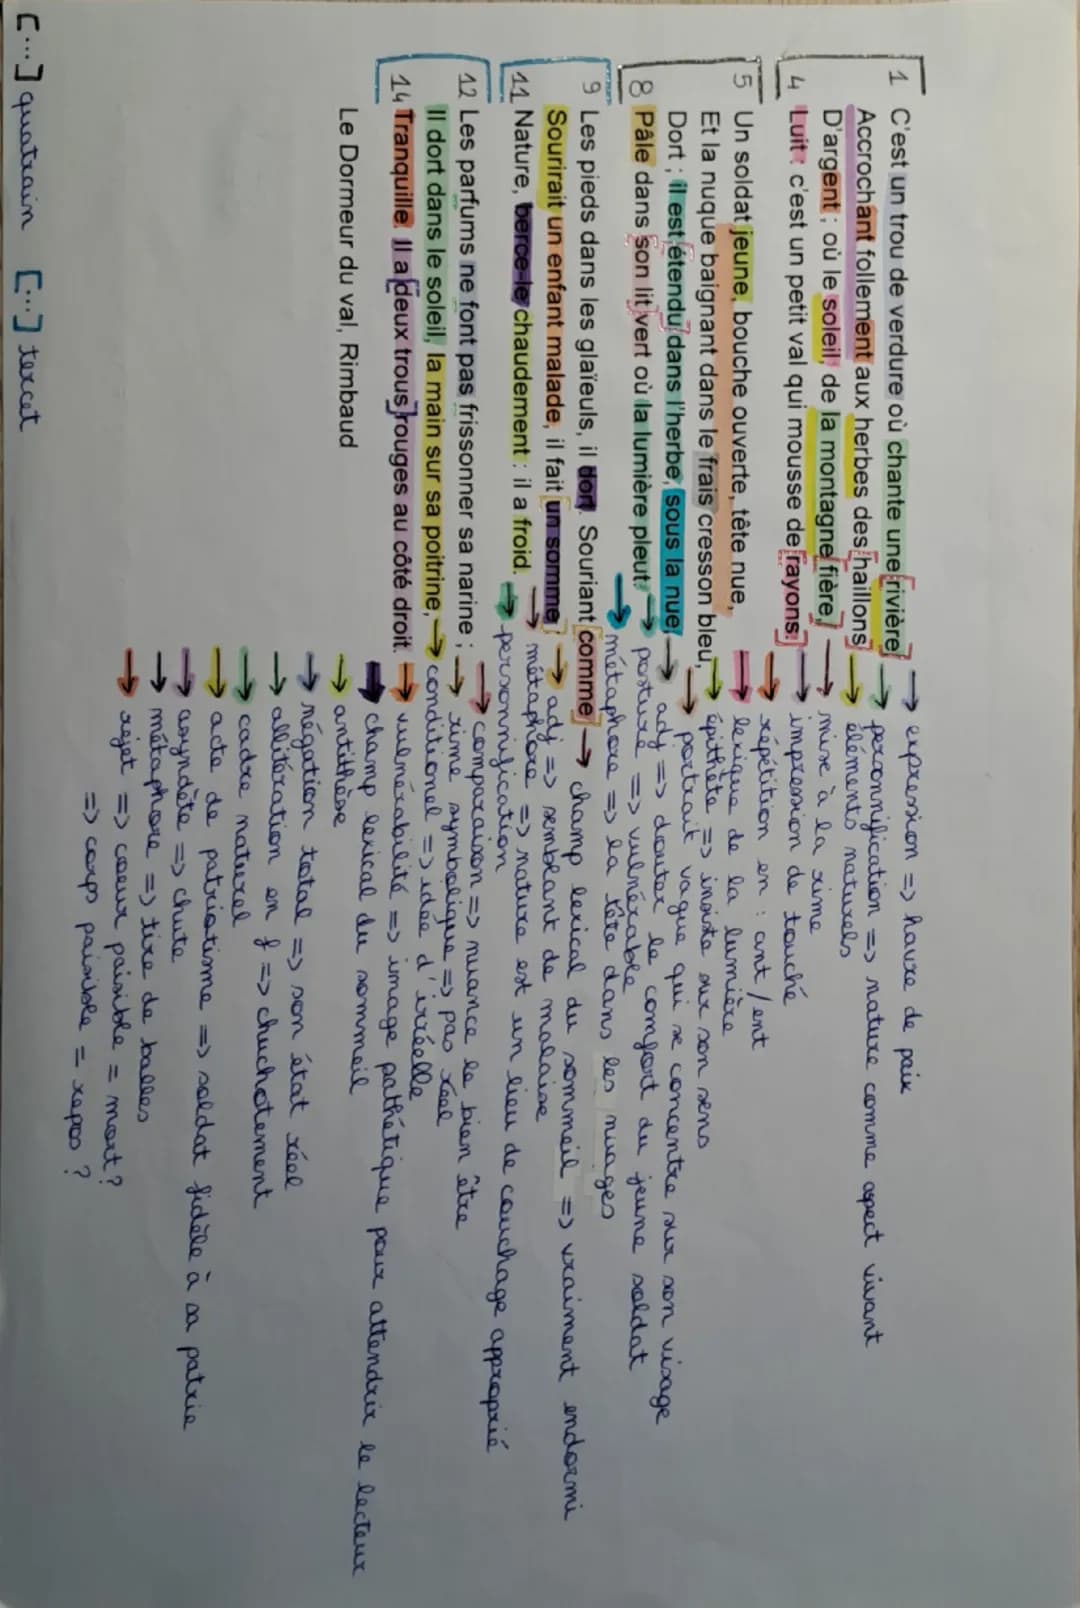 1 C'est un trou de verdure où chante une rivière
Accrochant follement aux herbes des haillons
D'argent ; où le soleil, de la montagne fière,
4 Luit : c'est un petit val qui mousse de rayons.
5 Un soldat jeune, bouche ouverte, tête nue,
Et la nuque baignant dans le frais cresson bleu,
Dort ; il est étendu dans l'herbe, sous la nue,
8 Pâle dans son lit vert où la lumière pleut.
9 Les pieds dans les glaïeuls, il dort. Souriant comme
Sourirait un enfant malade, il fait un somme :
11 Nature, berce-le chaudement : il a froid.
12 Les parfums ne font pas frissonner sa narine ;
Il dort dans le soleil, la main sur sa poitrine,
14 Tranquille. Il a deux trous rouges au côté droit.
Le Dormeur du val, Rimbaud
[...] quatrain [...] tercet
→ expression => havre de paix
→ personnification => nature comme aspect vivant
→ éléments naturels
→ mise à la rime
→ impression de touché
→ répétition en : ant / ent
→ lexique de la lumière
→ épithète => insiste sur son sens
→ portrait vague qui se concentre sur son visage
→ adj => douter le comfort du jeune soldat
→ posture => vulnérable
→ métaphore => la tête dans les nuages
→ champ lexical du sommeil => vraiment endormi
→ adj => semblant de malaise
→ métaphore => nature est un lieu de couchage approprié
→ personnification
→ comparaison => nuance le bien être
→ rime symbolique => pas réel
→ conditionnel => idée d'irréelle
→ vulnérabilité => image pathétique pour attendrir le lecteur
→ champ lexical du sommeil
→ antithèse
→ négation total => son état réel
→ allitération en f => chuchotement
→ cadre naturel
→ acte de patriotisme => soldat fidèle à sa patrie
→ asyndète => chute
→ métaphore => tire de balles
→ rejet => coeur paisible = mort ?
=> corps paisible = repos ?